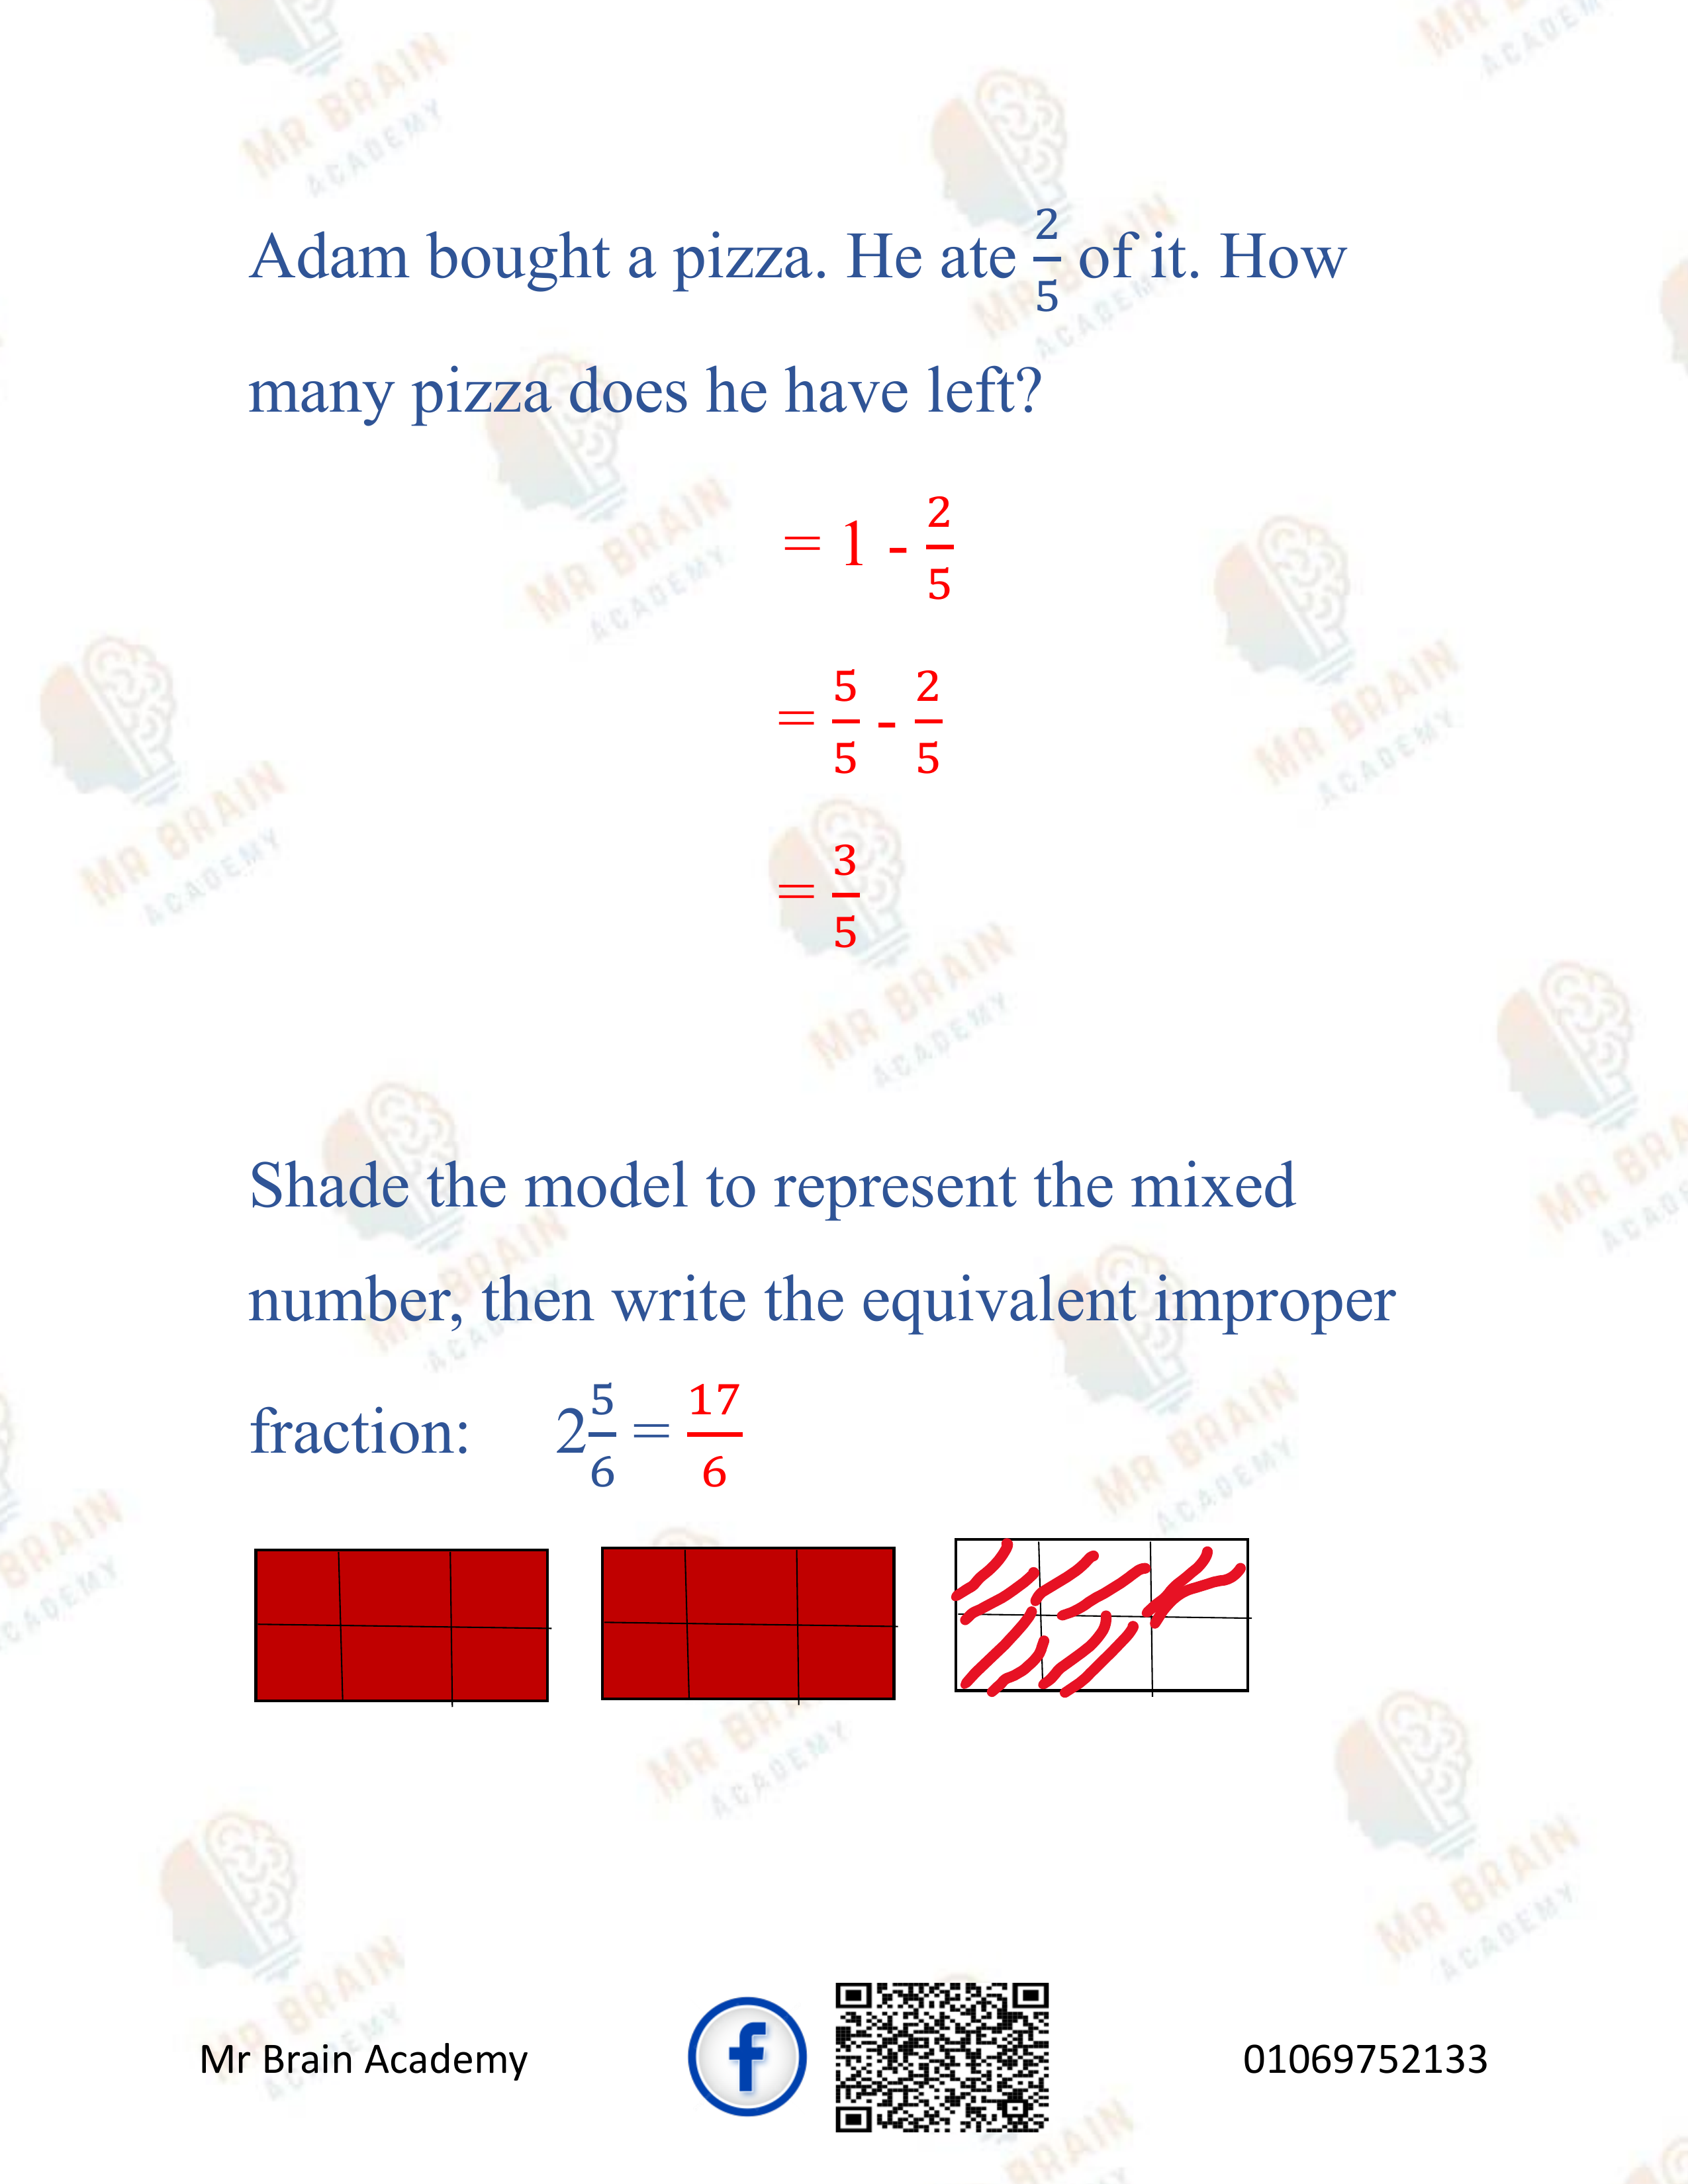 Adam bought a pizza. He ate 2/5 of it. How
many pizza does he have left?
= 1 - 2/5
= 5/5 - 2/5
= 3/5
Shade the model to represent the mixed
number, then write the equivalent improper
fraction: 2 5/6 = 17/6
Mr Brain Academy
01069752133
MR BRAIN
ACADEMY